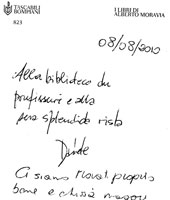 TASCABILI
BOMPIANI
823
I LIBRI DI
ALBERTO MORAVIA
08/08/2010
Alla biblioteca dei
professori e alla
sua splendida vista
Davide
Ci siamo trovati proprio
bene e chissà magari